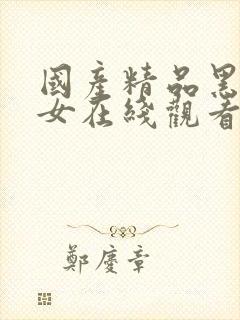 國產精品黑
女在綫觀看
鄭慶章